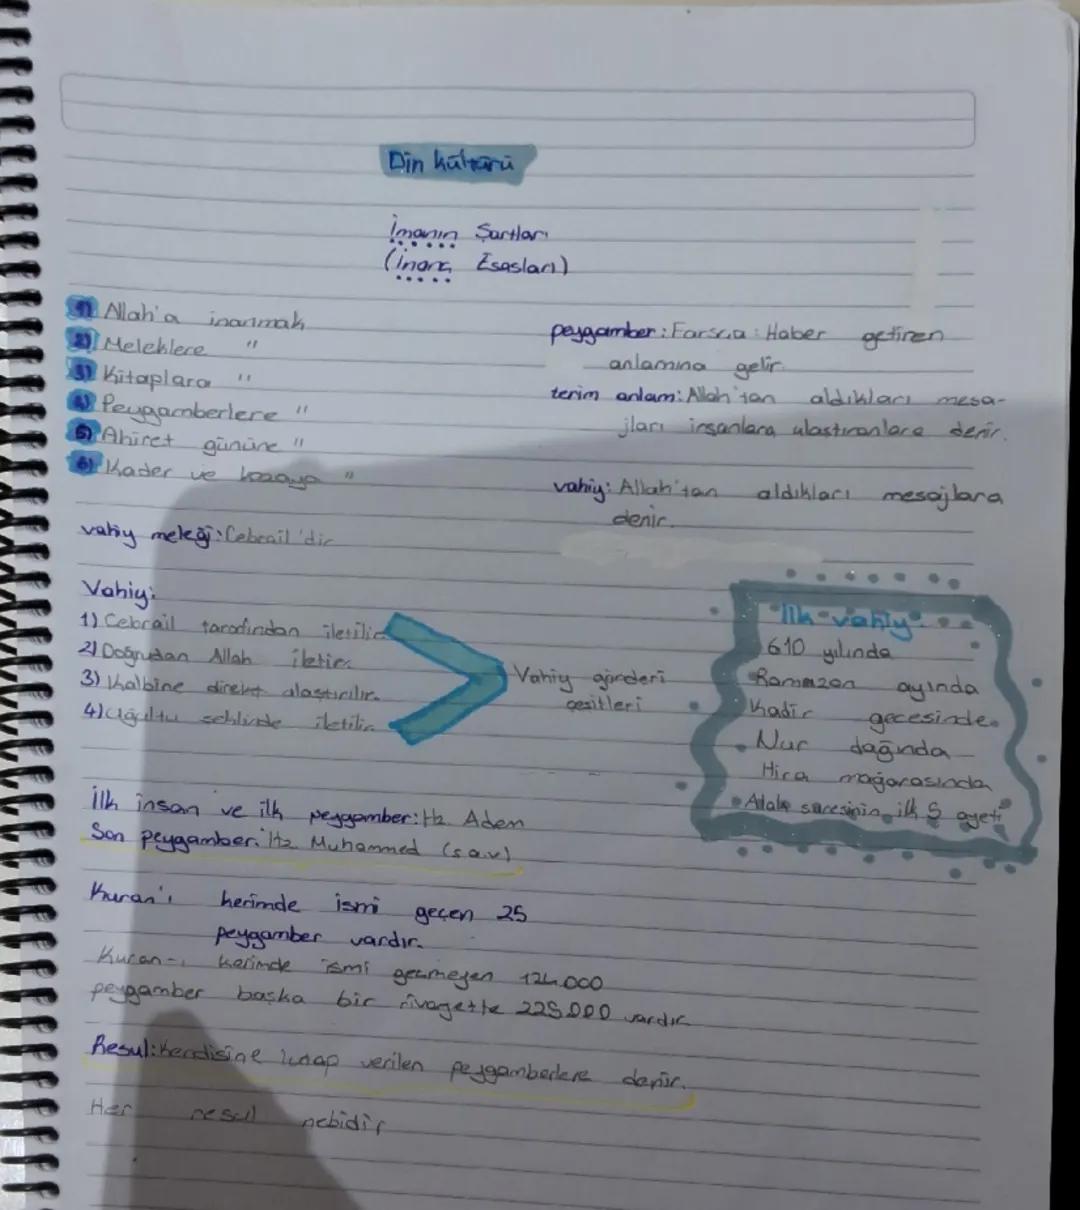 Din kültürü
İmanın Şartları
(İnanç Esasları)
1) Allah'a inanmak
2) Meleklere "
3) Kitaplara "
4) Peygamberlere "
5) Ahiret gününe "
6) Kader ve kazaya "
peygamber: Farsça: Haber getiren
anlamına gelir.
terim anlam: Allah'tan aldıkları mesa-
jları insanlara ulaştıranlara denir.
vahiy: Allah'tan aldıkları mesajlara
denir.
vahiy meleği: Cebrail'dir
Vahiy:
1) Cebrail tarafından iletilir
2) Doğrudan Allah iletir.
3) Kalbine direkt alaştırılır.
4) Uğultu şeklinde iletilir.
Vahiy gönderi
çeşitleri
İlk vahiy:
610 yılında
Ramazan ayında
Kadir gecesinde
Nur dağında
Hira mağarasında
suresinin ilk 5 ayeti
İlk insan ve ilk peygamber: Hz. Adem
Son peygamber: Hz Muhammed (s.a.v)
Kuran'ı kerimde ismi geçen 25
peygamber vardır.
Kuran-ı kerimde ismi geçmeyen 124.000
peygamber başka bir rivayette 225.000 vardır
Resul: Kendisine kitap verilen peygamberlere denir.
Her resul nebidir